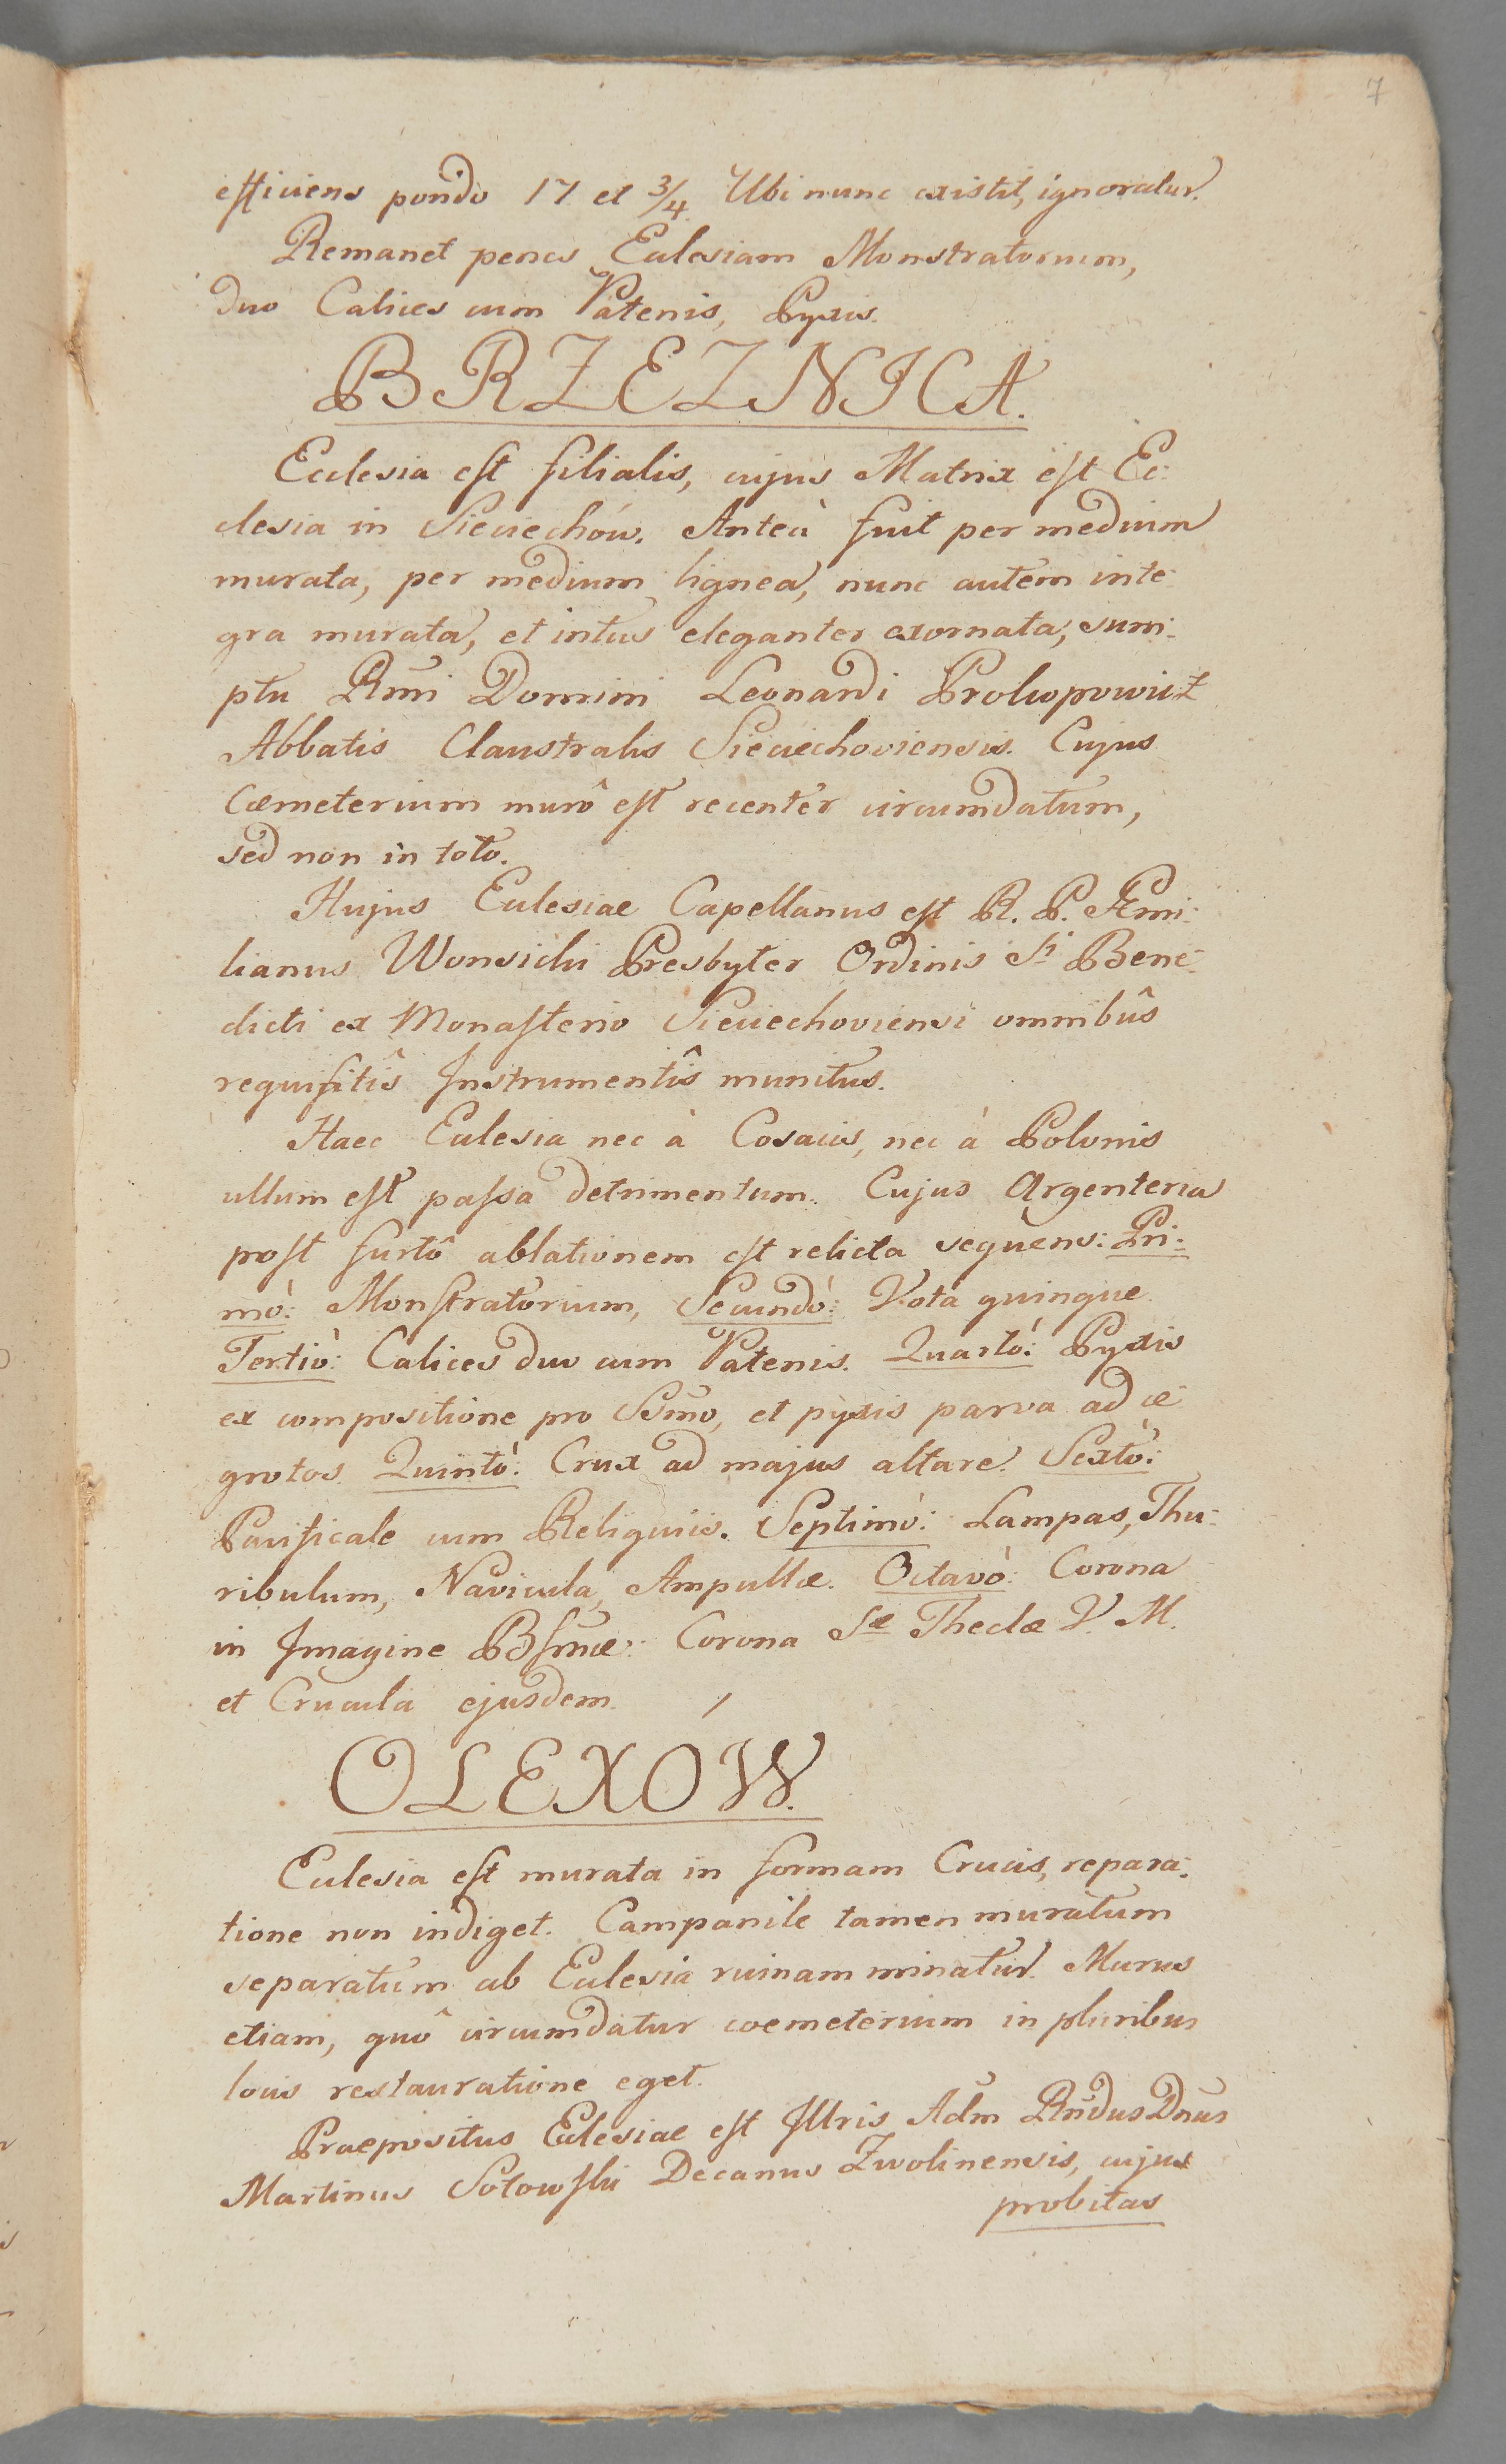 7
efficiens pondo 17 et 3/4 Ubi nunc existit, ignoratur.
Remanet penes Ecclesiam Monstratorium,
duo Calices cum Patenis, Pyxis.
BRZEZNICA.
Ecclesia est filialis, cujus Matrix est Ec-
clesia in Sieciechów. Anteà fuit per medium
murata, per medium lignea, nunc autem inte-
gra murata, et intus eleganter exornata, sum-
ptu Rmi Domini Leonardi Prokopowicz
Abbatis Claustralis Sieciechoviensis. Cujus
Cœmeterium murô est recenter circumdatum,
sed non in toto.
Hujus Ecclesiae Capellanus est R. P. Æmi-
lianus Wonsicki Presbyter Ordinis Sti Bene-
dicti ex Monasterio Sieciechoviensi omnibûs
requisitîs Instrumentîs munitus.
Haec Ecclesia nec à Cosacis, nec à Polonis
ullum est passa detrimentum. Cujus Argenteria
post furtô ablationem est relicta sequens: Pri-
mò: Monstratorium, Secundò: Vota quinque.
Tertiò: Calices duo cum Patenis. Quartò: Pyxis
ex compositione pro Ssmo, et pyxis parva ad æ-
grotos. Quintò: Crux ad majus altare. Sextò:
Pacificale cum Reliquiis. Septimò: Lampas, Thu-
ribulum, Navicula, Ampullæ. Octavò: Corona
in Imagine Bssmæ: Corona Sæ Theclæ V. M.
et Crucula ejusdem.
OLEXÓW.
Ecclesia est murata in formam Crucis, repara-
tione non indiget. Campanile tamen muratum
separatum ab Ecclesia ruinam minatur. Murus
etiam, quô circumdatur coemeterium in pluribus
locis restauratione eget.
Praepositus Ecclesiae est Illris Adm Rndus Dnus
Martinus Sotowski Decanus Zwolinensis, cujus
probitas